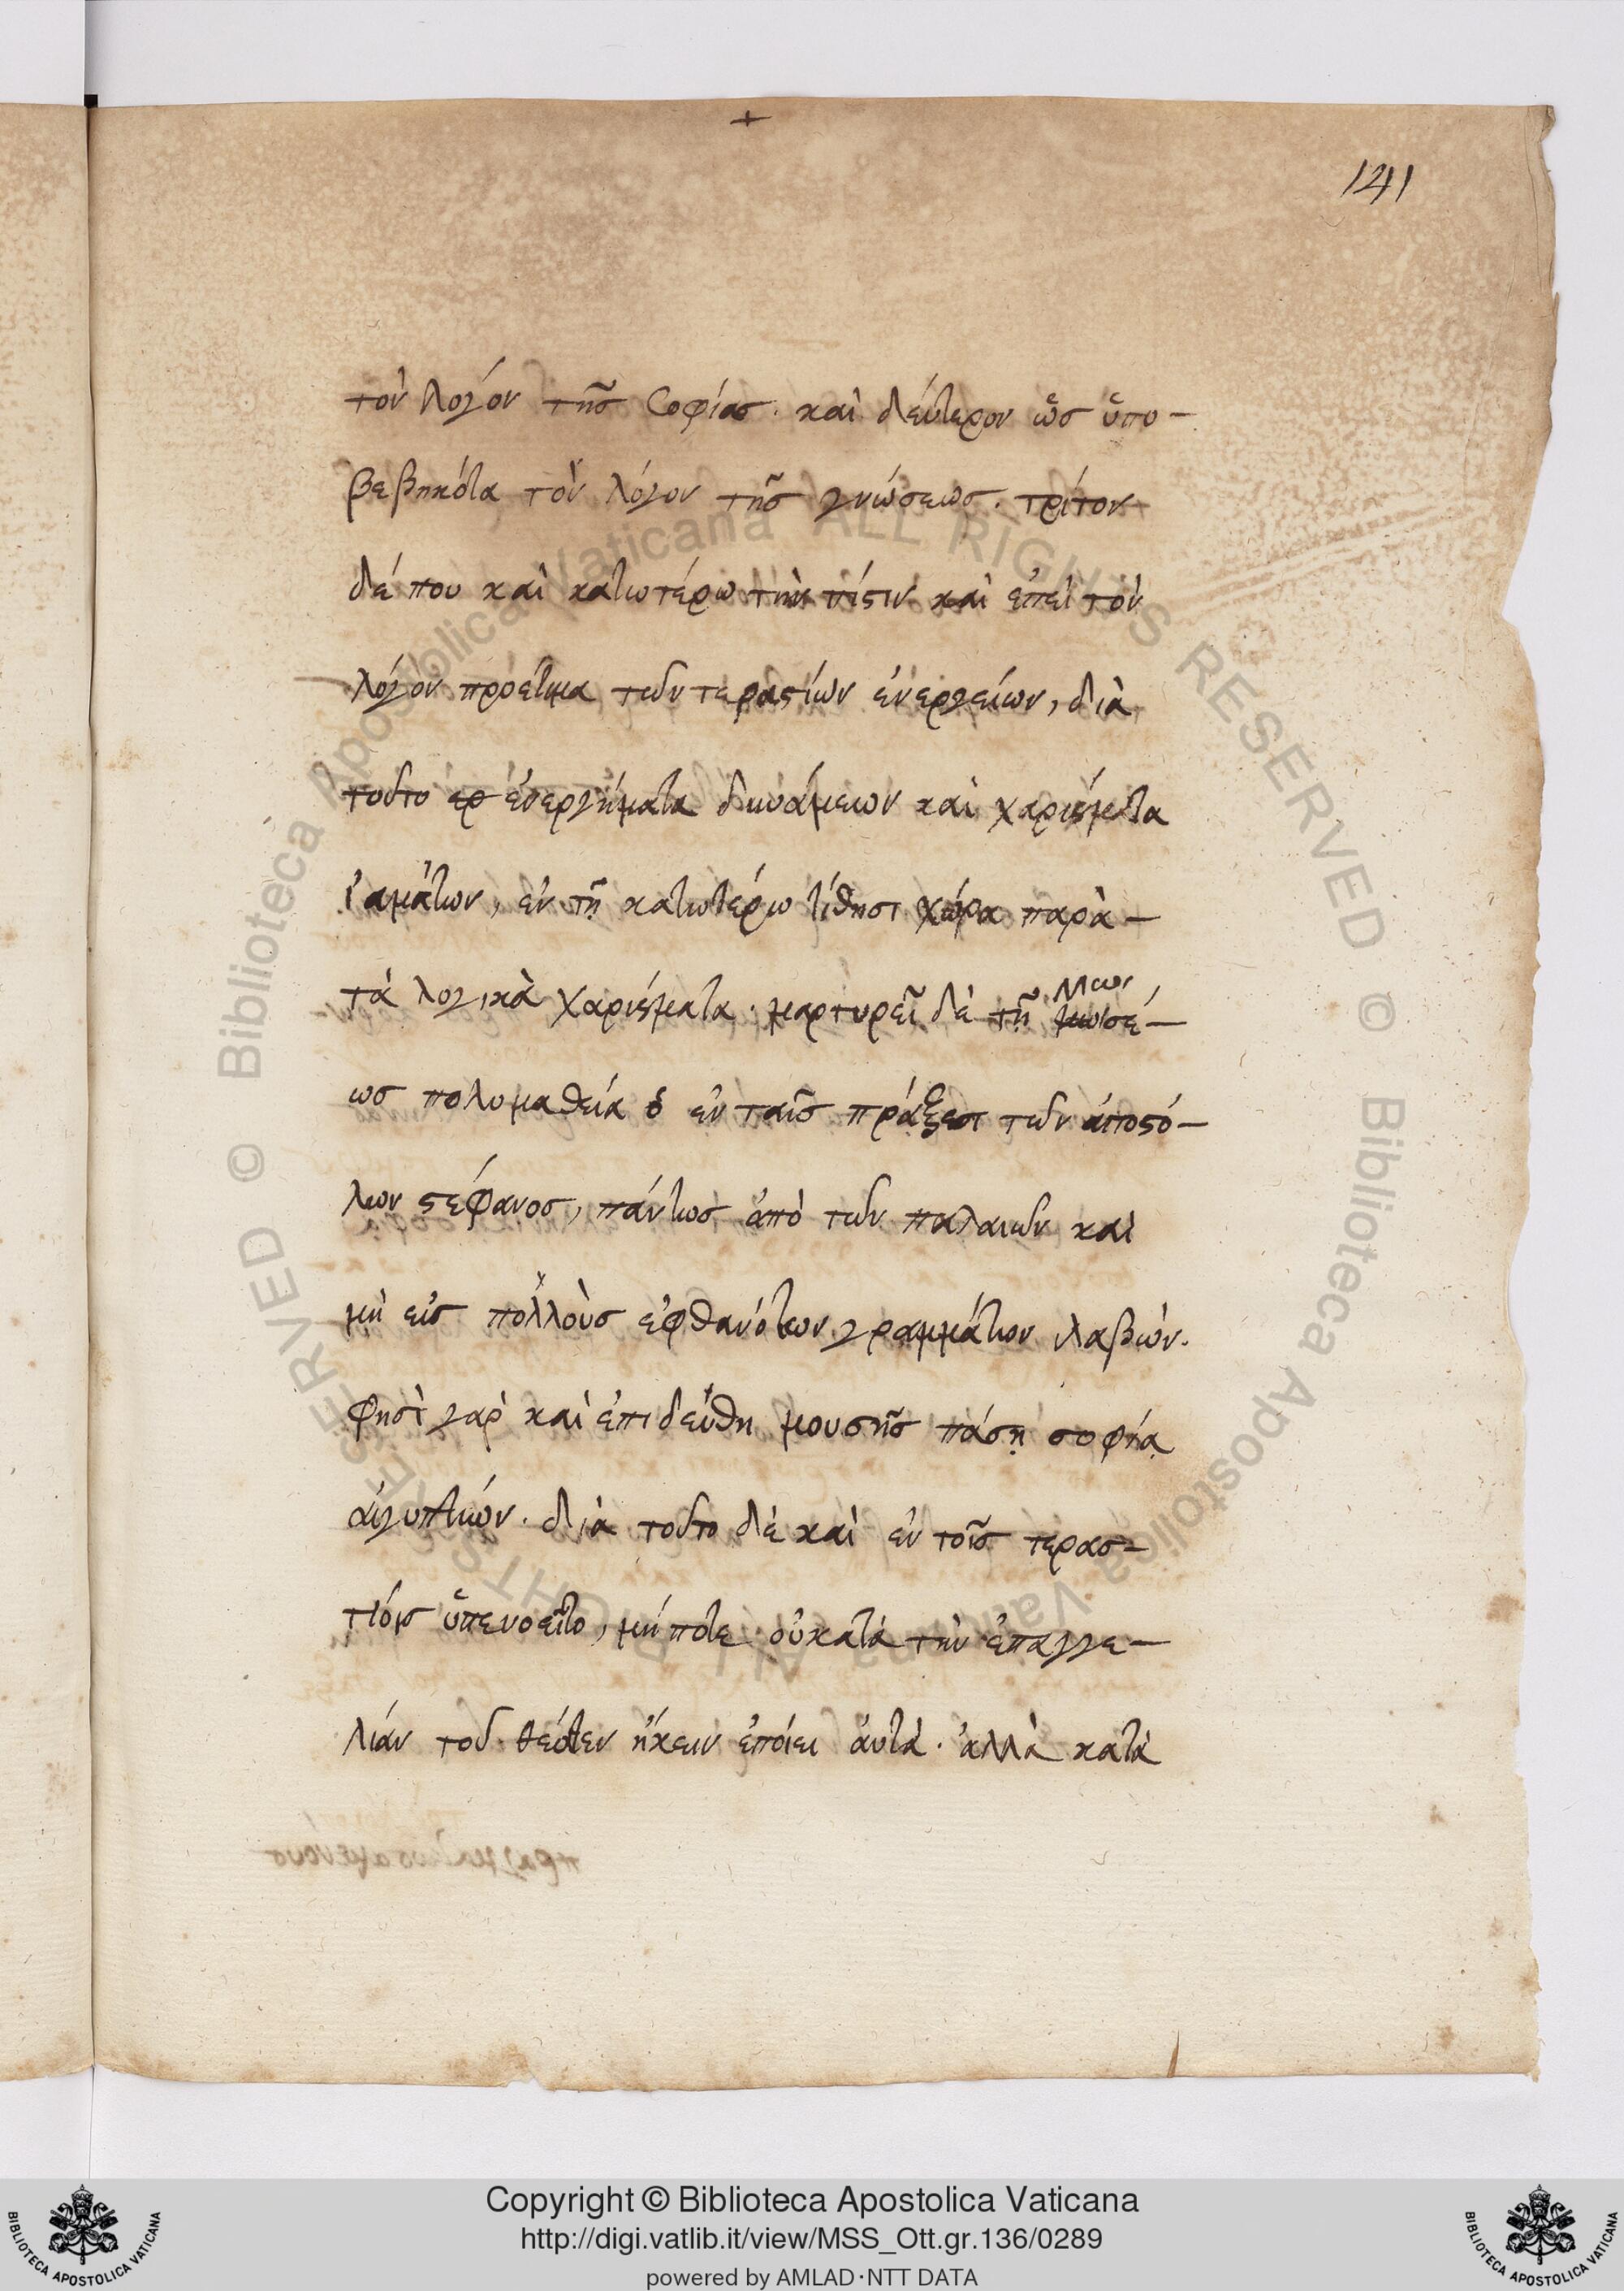 +
141
τὸν λογόν τῆς σοφίας. καὶ δεύτερον ὣς ὕπο-
βεβηκότα τὸν λόγον τῆς γνώσεως. τρίτον
δέ που καὶ κατωτέρω τὴν πίστιν καὶ ἐπεὶ τὸν
λόγον προετιμα τῶν τεραστίων ἐνεργείων, διὰ
τοῦτο ἐνεργήματα δυνάμεων καὶ χαρίσματα
ἰαμάτων, ἐν τῇ κατωτέρω τίθησι χώρα παρὰ-
τὰ λογικὰ χαρίσματα. μαρτυρεῖ δὲ τῇ μωσέ-
Μωσ
ως πολυμαθεία ὁ ἐν ταῖς πράξεσι τῶν ἀποστό-
λων στέφανος, πάντως ἀπὸ τῶν παλαιῶν καὶ
μὴ εἰς πολλοὺς ἐφθανότων γραμμάτων λαβὼν.
φησὶ γαρ καὶ ἐπιδεύθη μουσῆς πάσῃ σοφίᾳ
αἰγυπτιών. διὰ τοῦτο δὲ καὶ ἐν τοῖς τερασ-
τίοις ὕπενοεῖτο, μήποτε οὐ κατὰ τὴν ἐπαγγε-
λίαν τοῦ θεόθεν ἥκειν ἐποίει ἀυτὰ. ἀλλὰ κατὰ
Copyright © Biblioteca Apostolica Vaticana
http://digi.vatlib.it/view/MSS_Ott.gr.136/0289
powered by AMLAD·NTT DATA
BIBLIOTECA APOSTOLICA VATICANA
BIBLIOTECA APOSTOLICA VATICANA
© Biblioteca Apostolica Vaticana ALL RIGHTS RESERVED
© Biblioteca Apostolica Vaticana ALL RIGHTS RESERVED